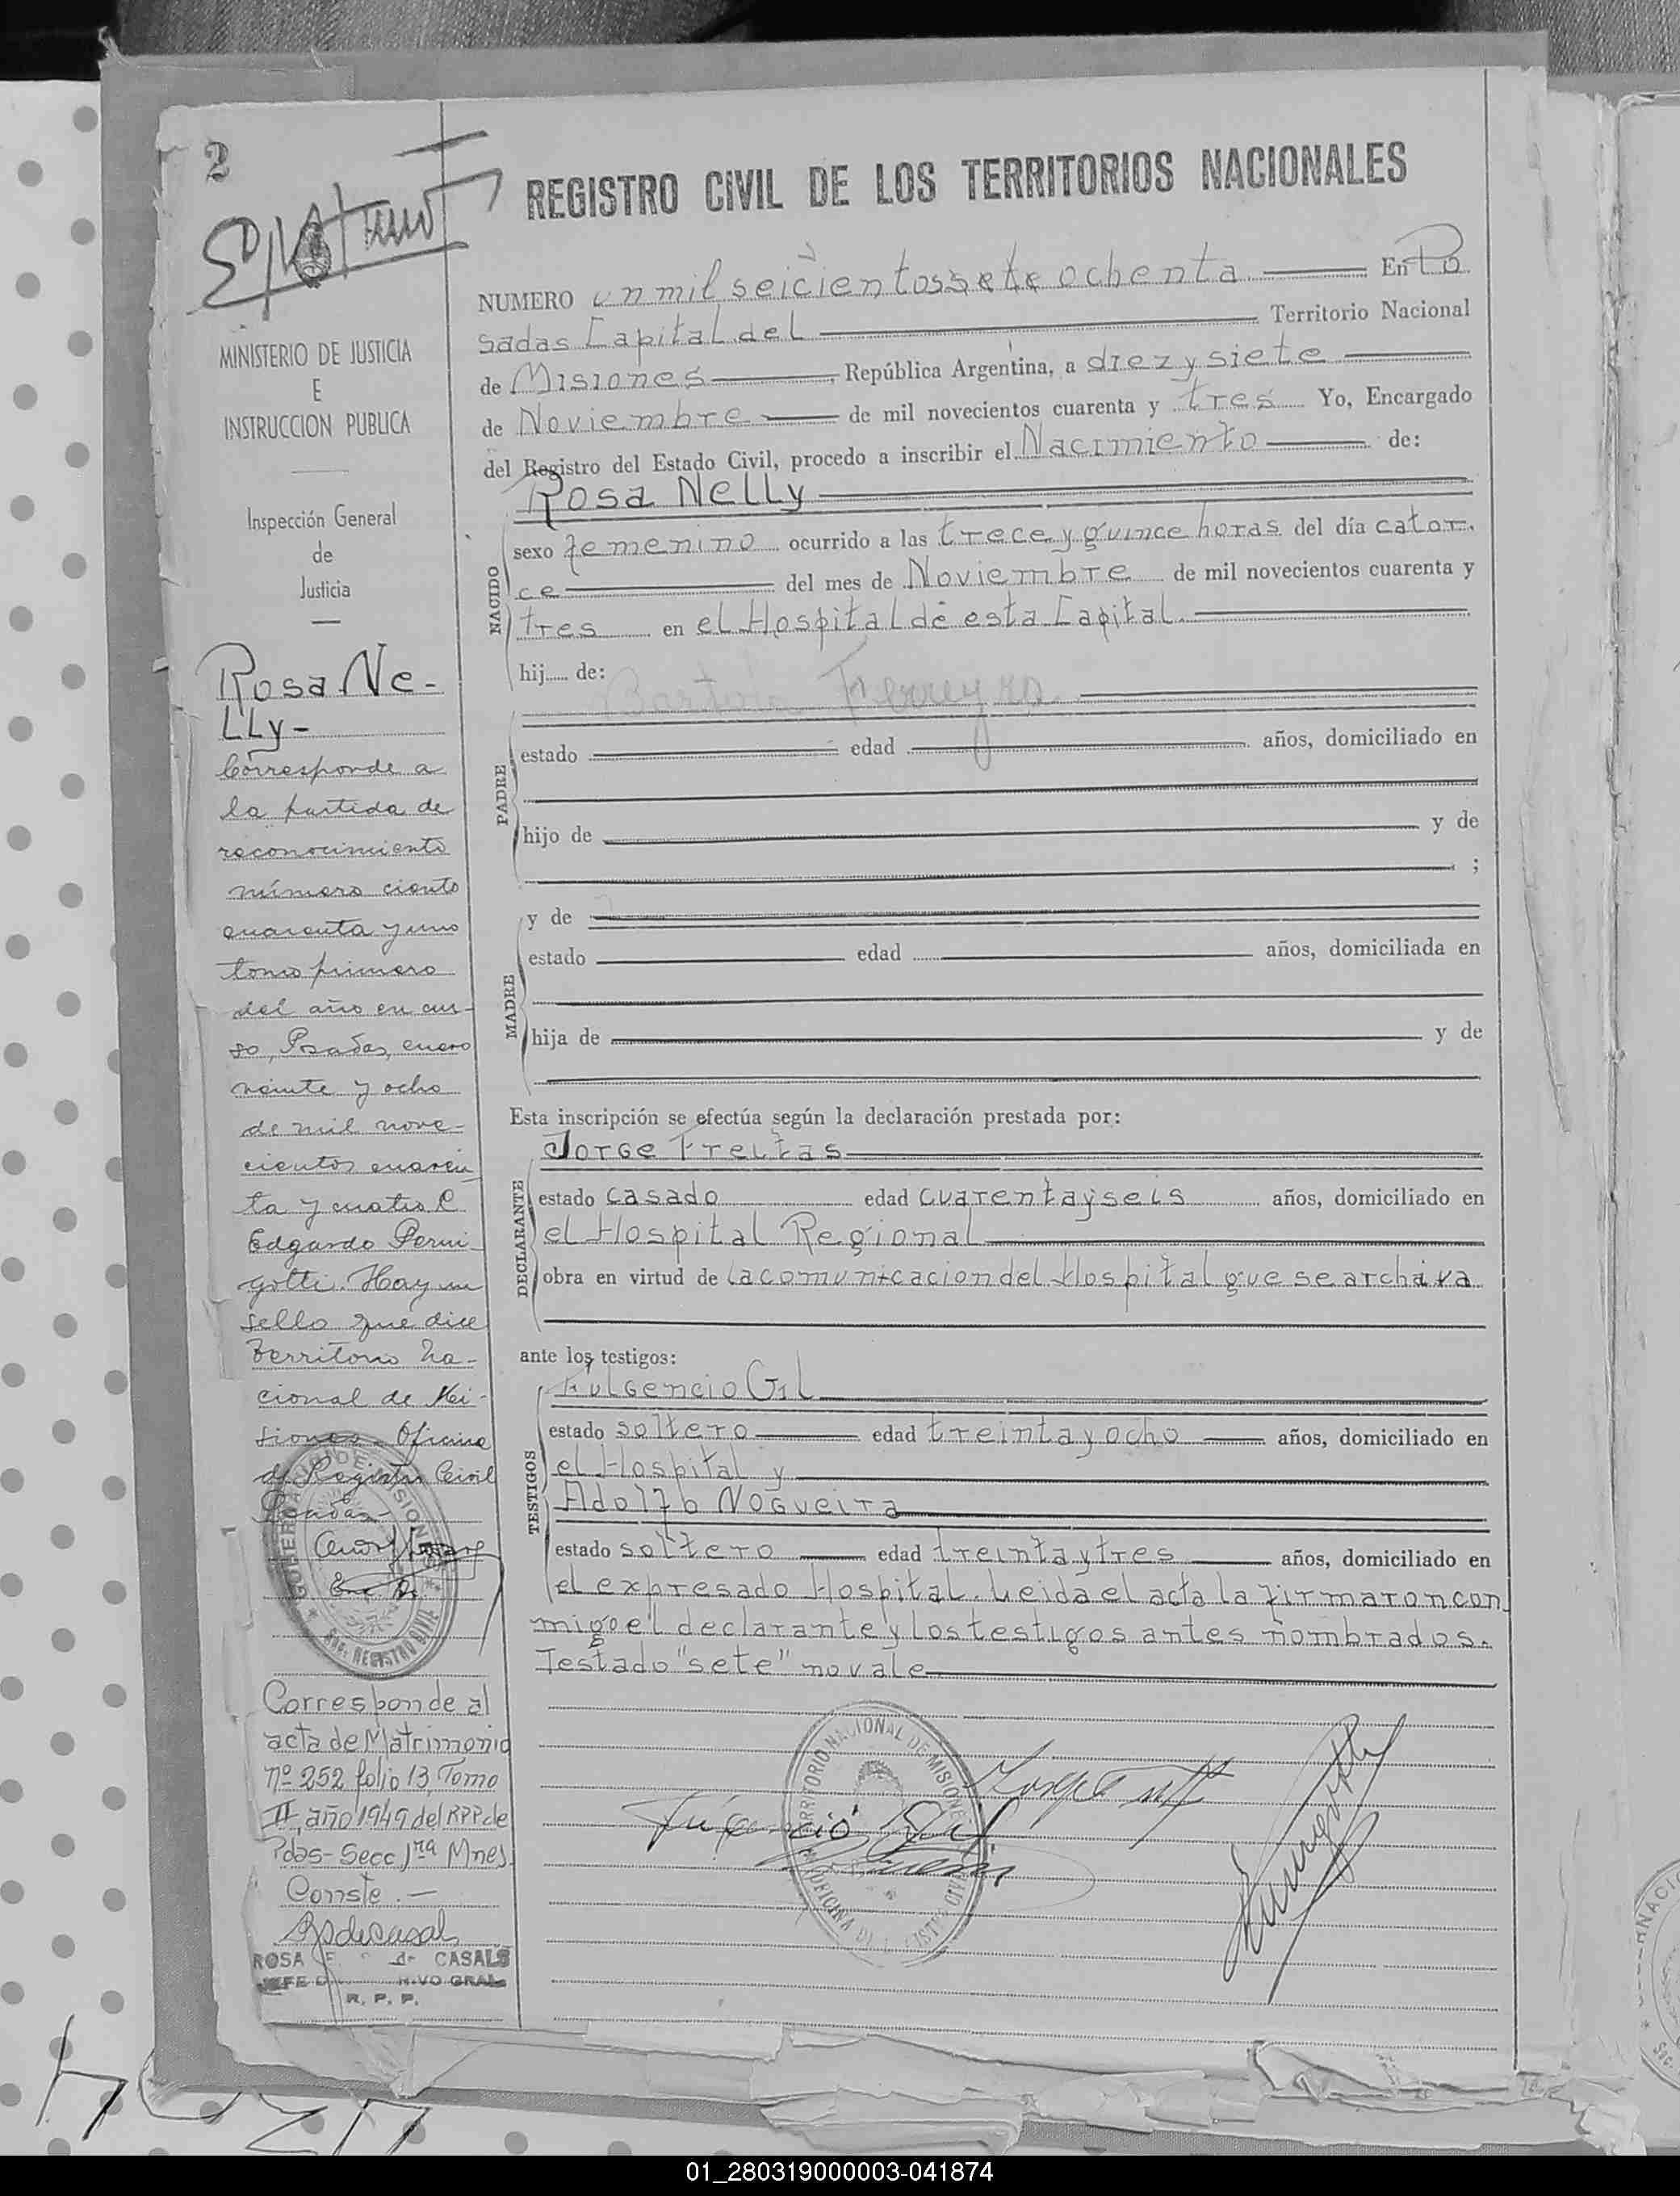 2
REGISTRO CIVIL DE LOS TERRITORIOS NACIONALES
NUMERO un mil seicientos sete ochenta En Po
sadas Capital del Territorio Nacional
de Misiones, República Argentina, a diez y siete
de Noviembre de mil novecientos cuarenta y tres Yo, Encargado
del Registro del Estado Civil, procedo a inscribir el Nacimiento de:
Rosa Nelly
NACIDO
sexo femenino ocurrido a las trece y quince horas del día cator
ce del mes de Noviembre de mil novecientos cuarenta y
tres en el Hospital de esta Capital.
hij..... de:
Ferreyra
PADRE
estado edad años, domiciliado en
hijo de y de
;
MADRE
y de
estado edad años, domiciliada en
hija de y de
Esta inscripción se efectúa según la declaración prestada por:
DECLARANTE
Jorge Freitas
estado casado edad cuarenta y seis años, domiciliado en
el Hospital Regional
obra en virtud de la comunicacion del Hospital que se archiva
ante los testigos:
TESTIGOS
Fulgencio Gil
estado soltero edad treinta y ocho años, domiciliado en
el Hospital y
Adolfo Nogueira
estado soltero edad treinta y tres años, domiciliado en
el expresado Hospital. Leida el acta la firmaron con
migo el declarante y los testigos antes nombrados.
Testado "sete" no vale
TERRITORIO NACIONAL DE MISIONES
MINISTERIO DE JUSTICIA
E
INSTRUCCION PUBLICA
Inspección General
de
Justicia
Rosa Ne-
lly-
Corresponde a
la partida de
reconocimiento
número ciento
cuarenta y uno
tomo primero
del año en cur-
so, Posadas, enero
veinte y ocho
de mil nove-
cientos cuaren
ta y cuatro
Edgardo Perui
gotti. Hay un
sello que dice
Territorio Na-
cional de Mi-
siones. Oficina
de Registro Civil
Posadas
GOBERNACION DE MISIONES
REGISTRO CIVIL
Corresponde al
acta de Matrimonio
nº 252 folio 13, Tomo
II, año 1949 del RPP de
Pdas- Secc 1ra Mnes.
Conste.-
ROSA E. de CASALS
JEFE GRAL
R. P. P.
01_280319000003-041874